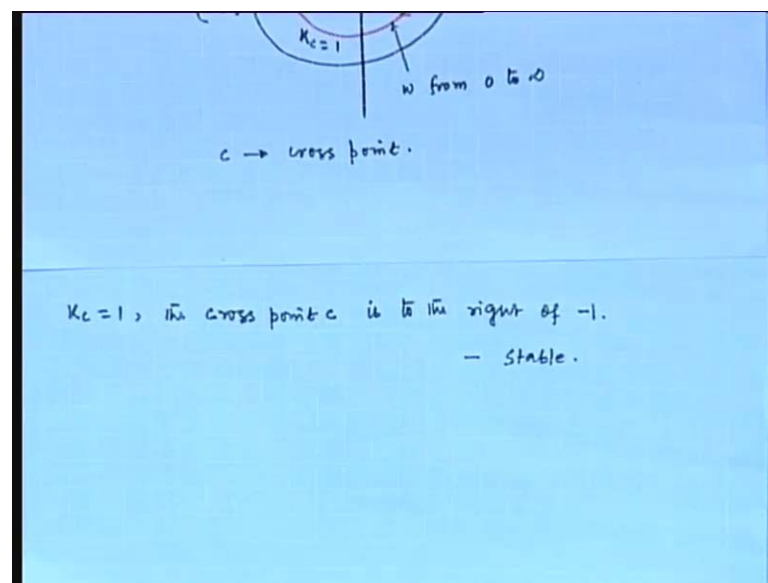 Kc = 1
w from 0 to ∞
c → cross point.
Kc = 1, the cross point c is to the right of -1.
- Stable.